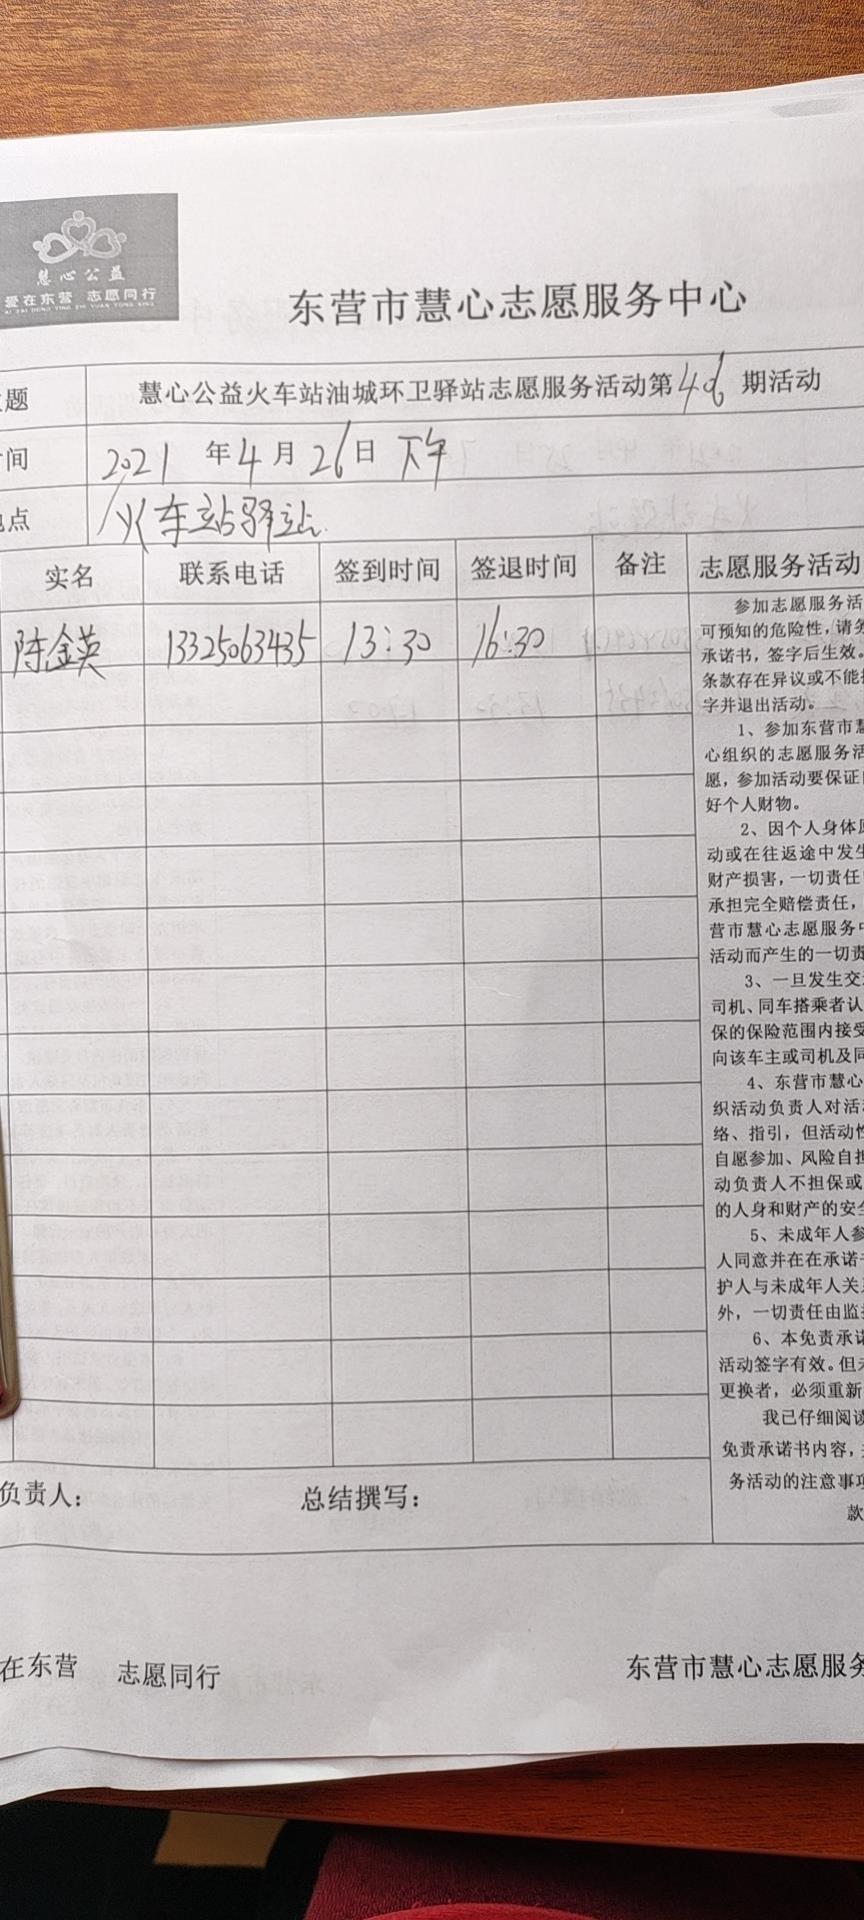 慧心公益
爱在东营 志愿同行
AI ZAI DONG YING ZHI YUAN TONG XING
东营市慧心志愿服务中心
题 慧心公益火车站油城环卫驿站志愿服务活动第406期活动
间 2021年4月26日 下午
点 火车站驿站
实名 联系电话 签到时间 签退时间 备注 志愿服务活动
陈金英 13325063435 13:30 16:30
参加志愿服务活
可预知的危险性,请务
承诺书,签字后生效。
条款存在异议或不能
字并退出活动。
1、参加东营市慧
心组织的志愿服务活
愿,参加活动要保证
好个人财物。
2、因个人身体原
动或在往返途中发生
财产损害,一切责任
承担完全赔偿责任,
营市慧心志愿服务中
活动而产生的一切责
3、一旦发生交
司机、同车搭乘者认
保的保险范围内接受
向该车主或司机及同
4、东营市慧心
织活动负责人对活
络、指引,但活动性
自愿参加、风险自担
动负责人不担保或
的人身和财产的安全
5、未成年人参
人同意并在在承诺书
护人与未成年人关系
外,一切责任由监
6、本免责承诺
活动签字有效。但
更换者,必须重新
我已仔细阅读
免责承诺书内容,
务活动的注意事项
款
负责人: 总结撰写:
在东营 志愿同行 东营市慧心志愿服务